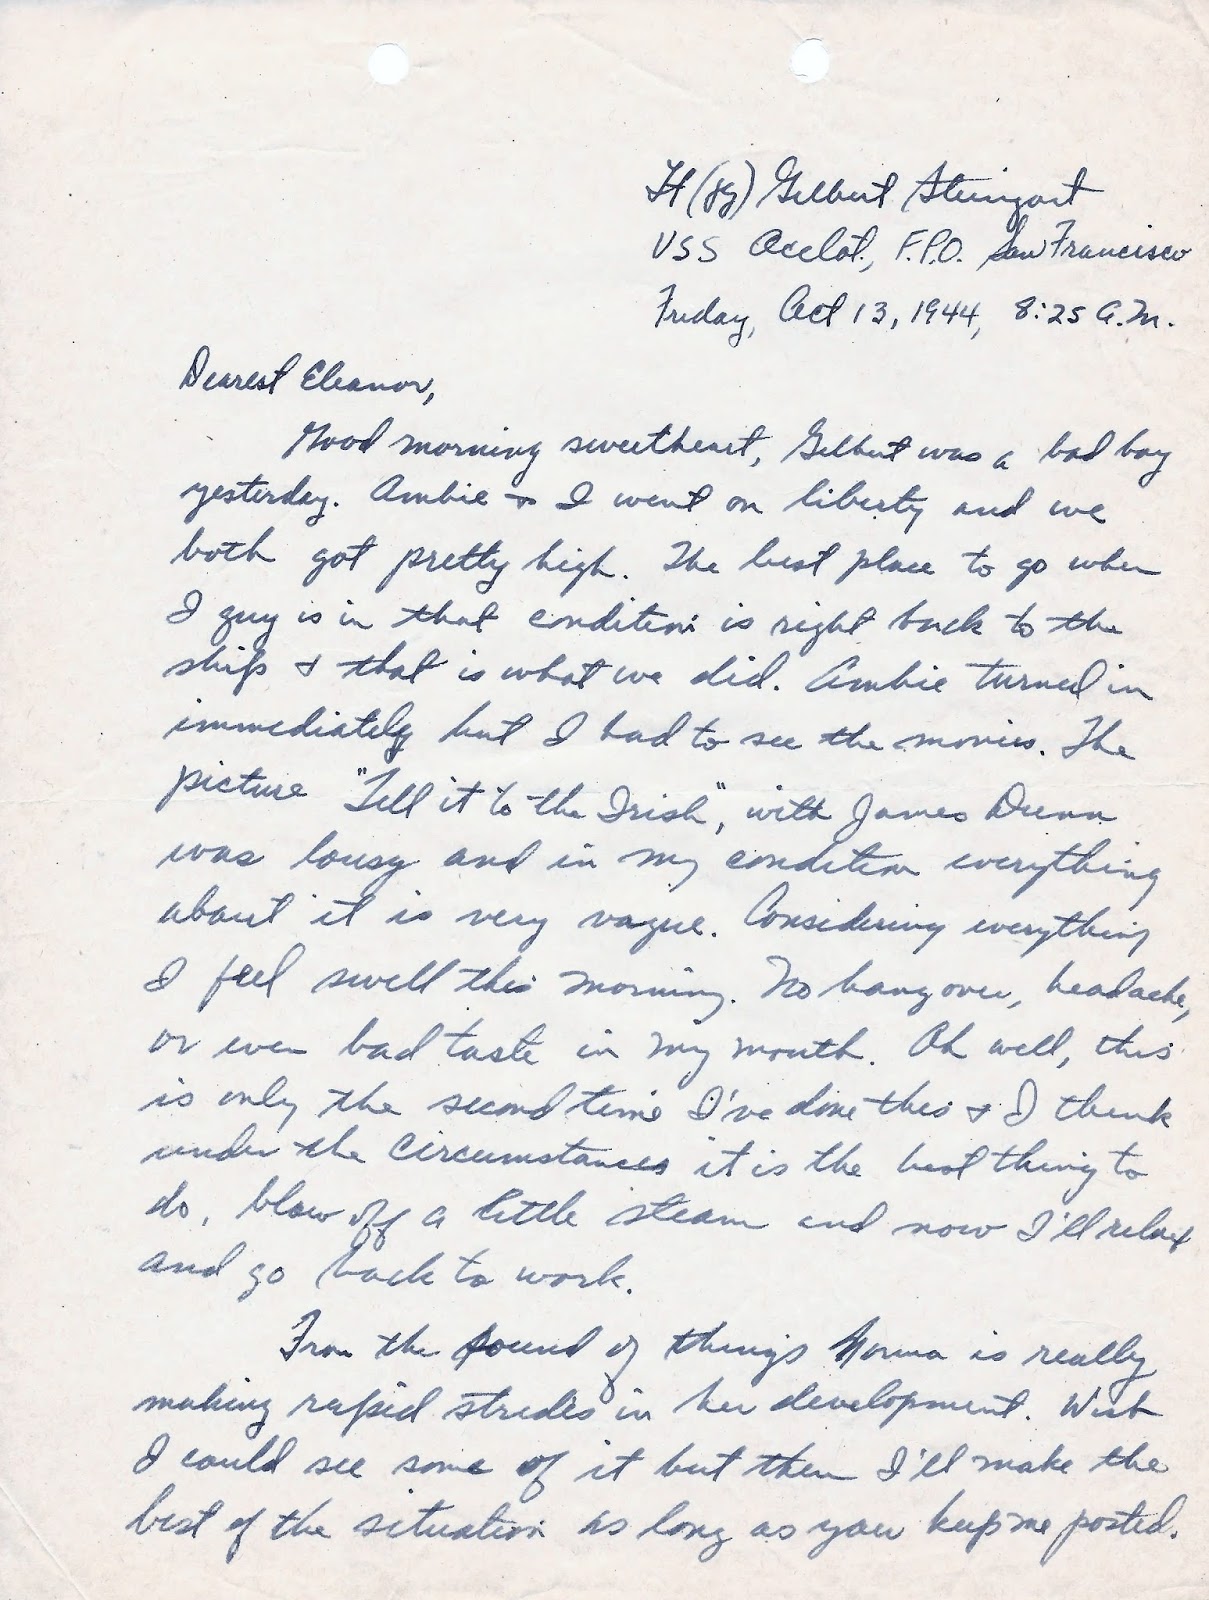 Lt (jg) Gilbert Steingart
USS Ocelot, F.P.O. San Francisco
Friday, Oct 13, 1944, 8:25 A.M.
Dearest Eleanor,
Good morning sweetheart, Gilbert was a bad boy
yesterday. Ambie & I went on liberty and we
both got pretty high. The best place to go when
I guy is in that condition is right back to the
ship & that is what we did. Ambie turned in
immediately but I had to see the movies. The
picture "Tell it to the Irish", with James Dunn
was lousy and in my condition everything
about it is very vague. Considering everything
I feel swell this morning. No hangover, headache,
or even bad taste in my mouth. Oh well, this
is only the second time I've done this & I think
under the circumstances it is the best thing to
do, blow off a little steam and now I'll relax
and go back to work.
From the sound of things Norma is really
making rapid strides in her development. Wish
I could see some of it but then I'll make the
best of the situation as long as you keep me posted.